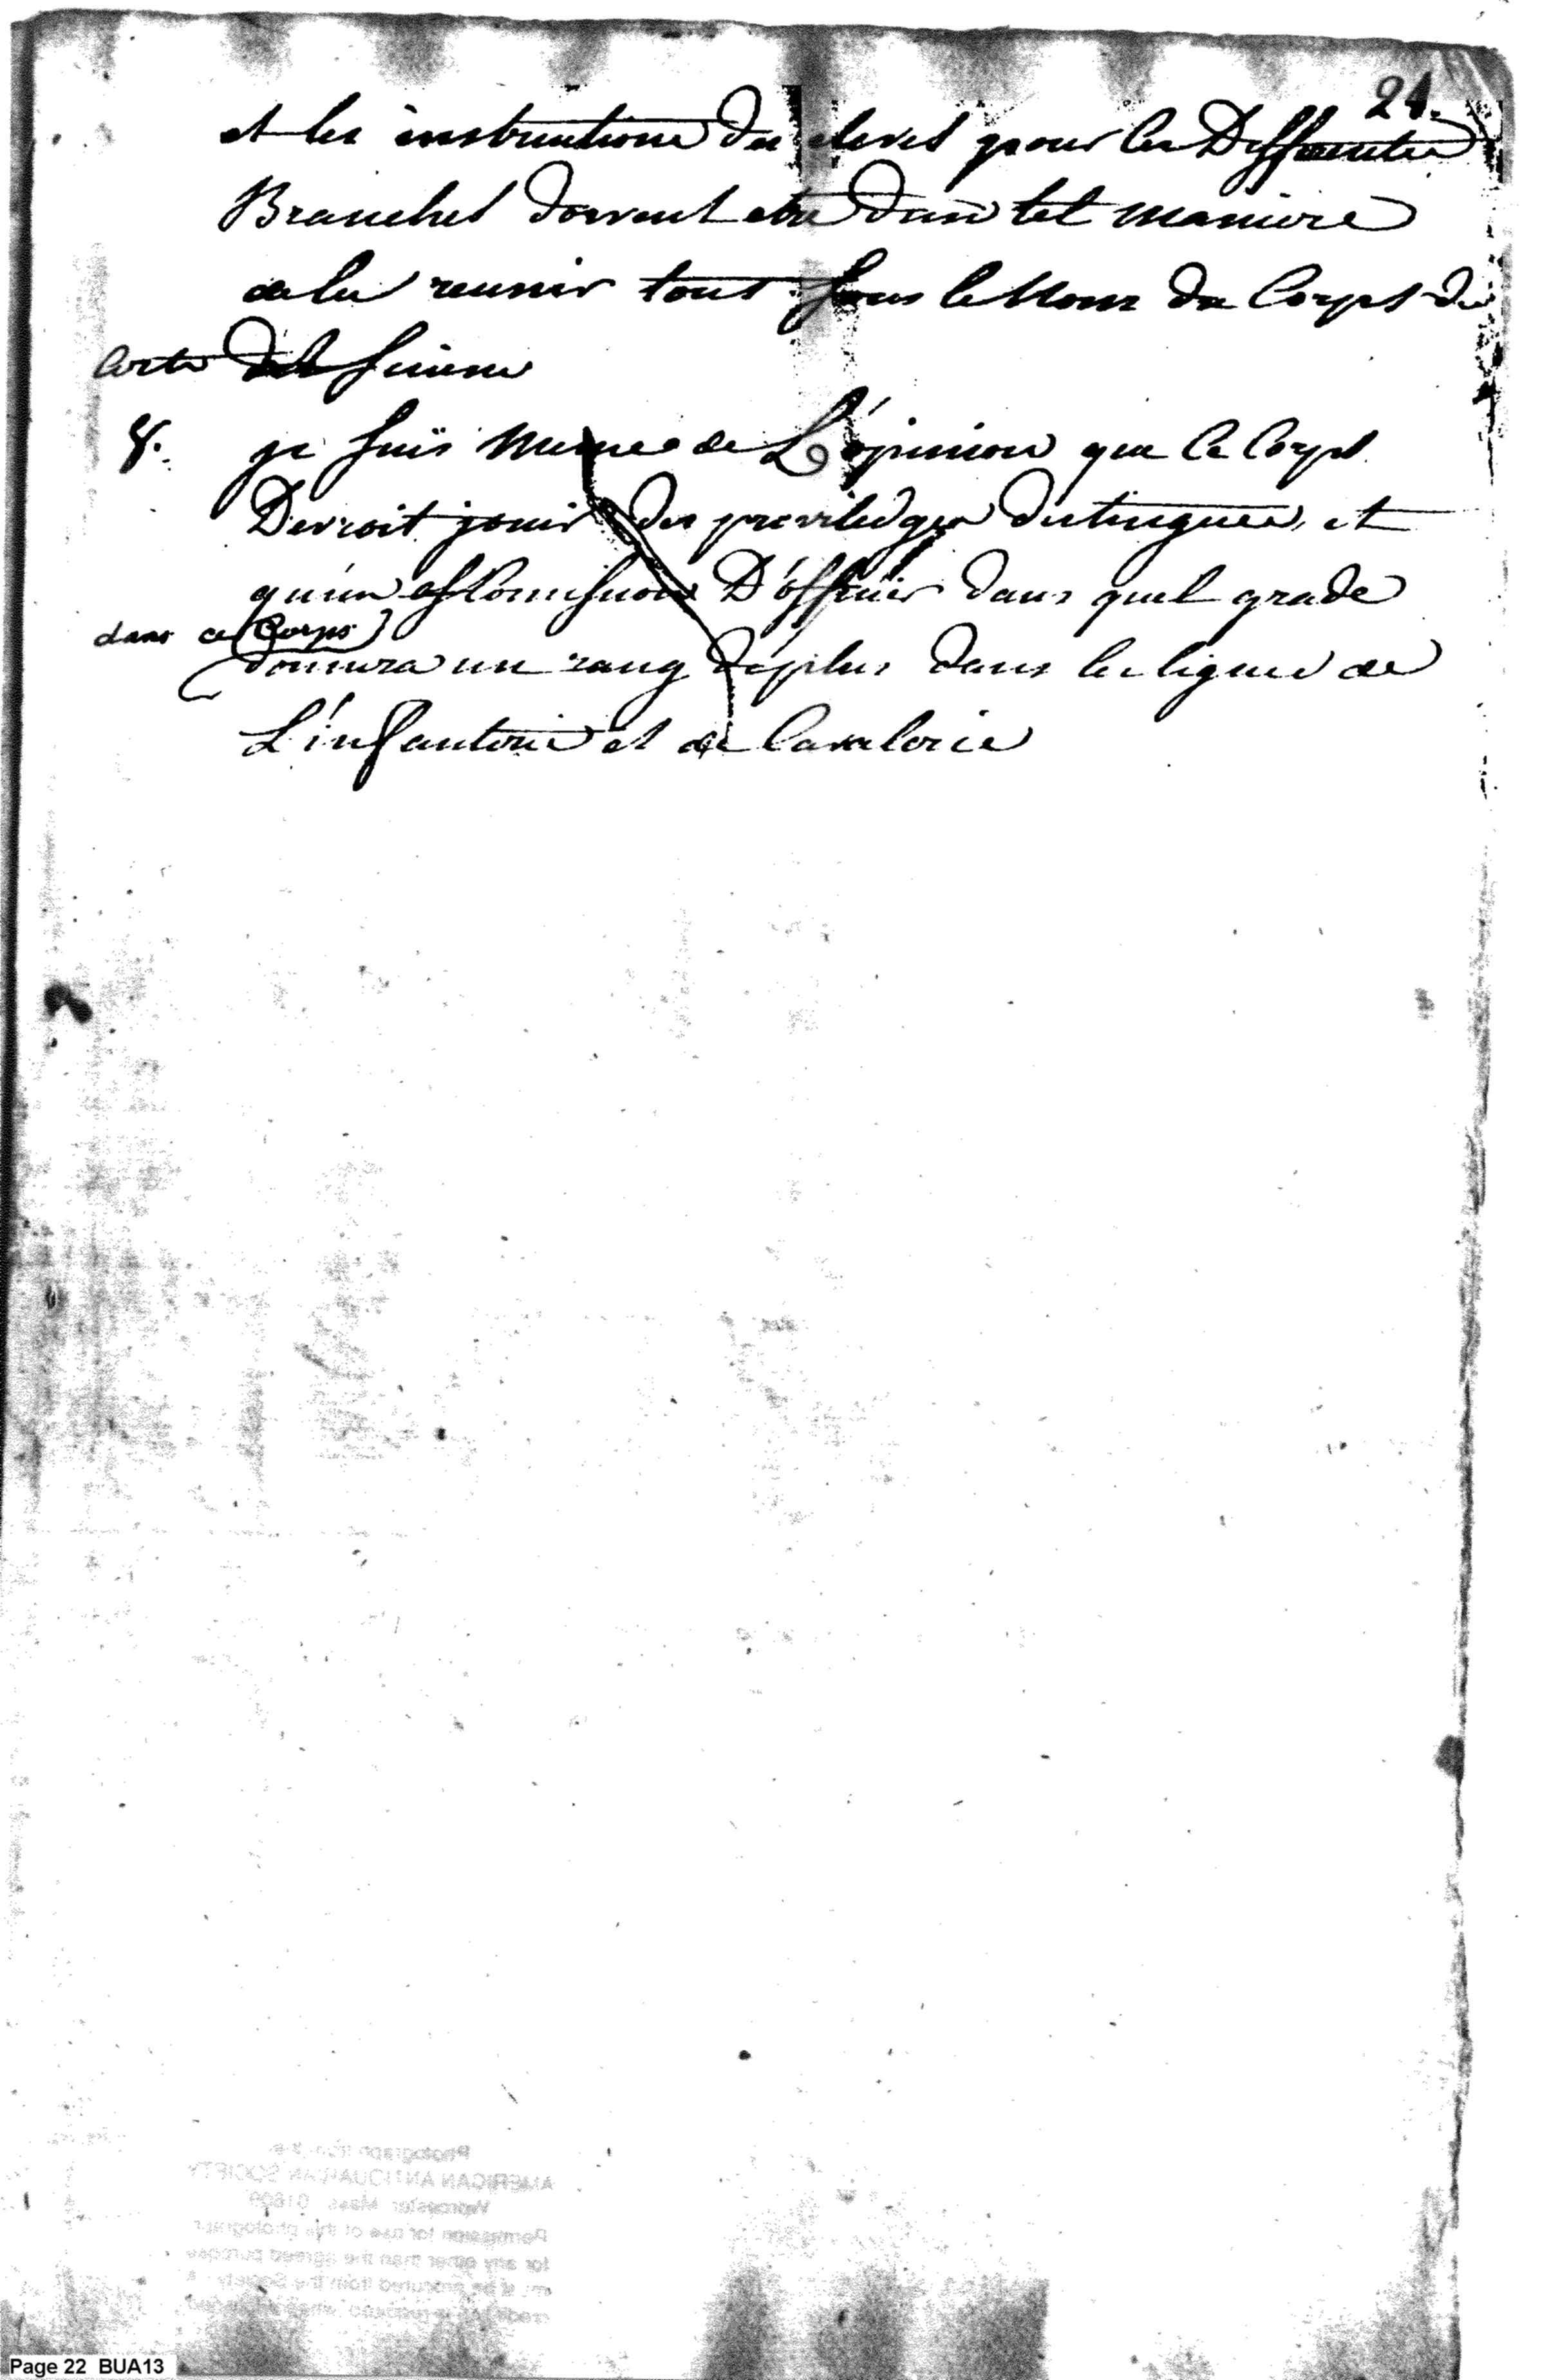 21.
et les instructions des eleves pour les Differentes
Branches doivent etre dans tel maniere
de les reunir tout sous le Nom du Corps de
Arts et science
8. je suis meme de L'ópinion que le Corps
Devroit jouir des priviledges distingues, et
qu'un D'óffiuier dans quel grade
dans ce Corps
donnera un rang de plus dans les lignes de
L'infanterie et de Cavalerie
Photograph from the
AMERICAN ANTIQUARIAN SOCIETY
Worcester, Mass. 01609
Permission for use of this photograph
for any other than the agreed purpose
must be procured from the Society. A
Page 22 BUA13